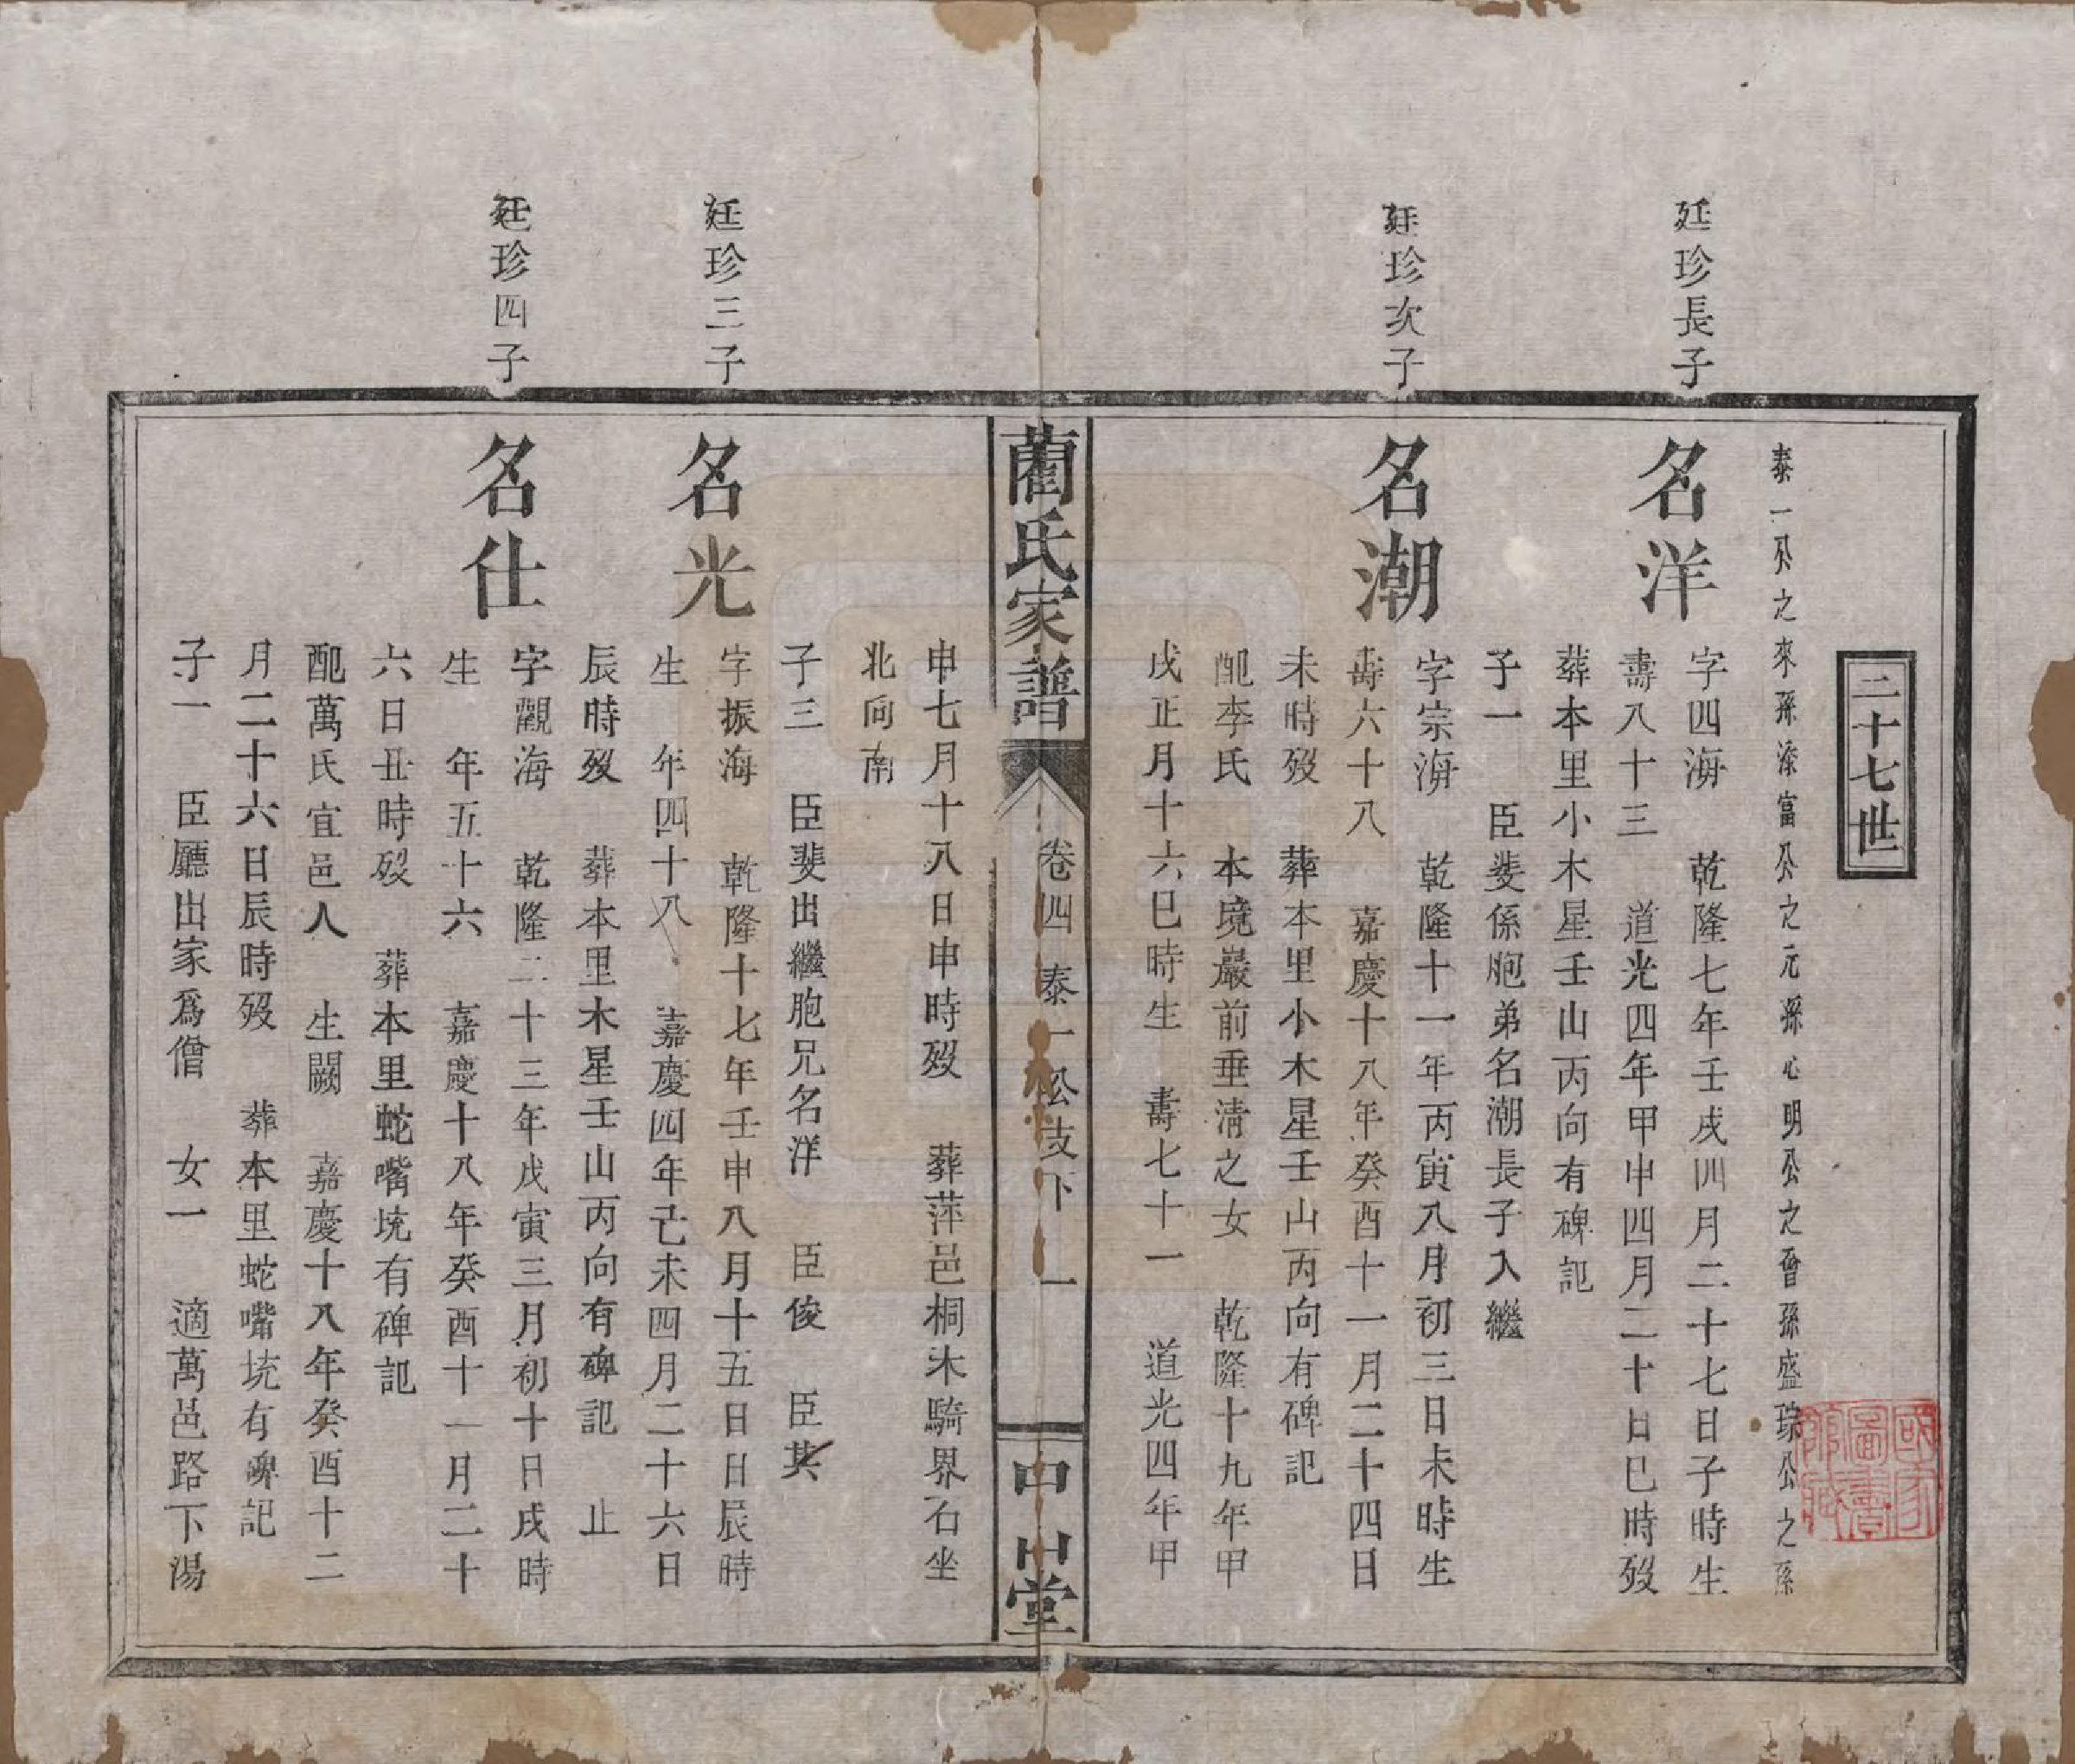 二十七世
泰一公之來孫漆富公之元孫心明公之曾孫盛琮公之孫
廷珍長子
名洋
字四海　乾隆七年壬戌四月二十七日子時生
壽八十三　道光四年甲申四月二十日巳時歿
葬本里小木星壬山丙向有碑記
子一　臣斐係胞弟名潮長子入繼
廷珍次子
名潮
字宗海　乾隆十一年丙寅八月初三日未時生
壽六十八　嘉慶十八年癸酉十一月二十四日
未時歿　葬本里小木星壬山丙向有碑記
配李氏　本境巖前垂淸之女　乾隆十九年甲
戌正月十六巳時生　壽七十一　道光四年甲
藺氏家譜　卷四　泰一公支下　一　中山堂
申七月十八日申時歿　葬萍邑桐木騎界石坐
北向南
子三　臣斐出繼胞兄名洋　臣俊　臣其
廷珍三子
名光
字振海　乾隆十七年壬申八月十五日日辰時
生　年四十八　嘉慶四年己未四月二十六日
辰時歿　葬本里木星壬山丙向有碑記　止
廷珍四子
名仕
字觀海　乾隆二十三年戊寅三月初十日戌時
生　年五十六　嘉慶十八年癸酉十一月二十
六日丑時歿　葬本里蛇嘴垸有碑記
配萬氏宜邑人　生闕　嘉慶十八年癸酉十二
月二十六日辰時歿　葬本里蛇嘴垸有碑記
子一　臣廳出家爲僧　女一　適萬邑路下湯
國家圖書館藏